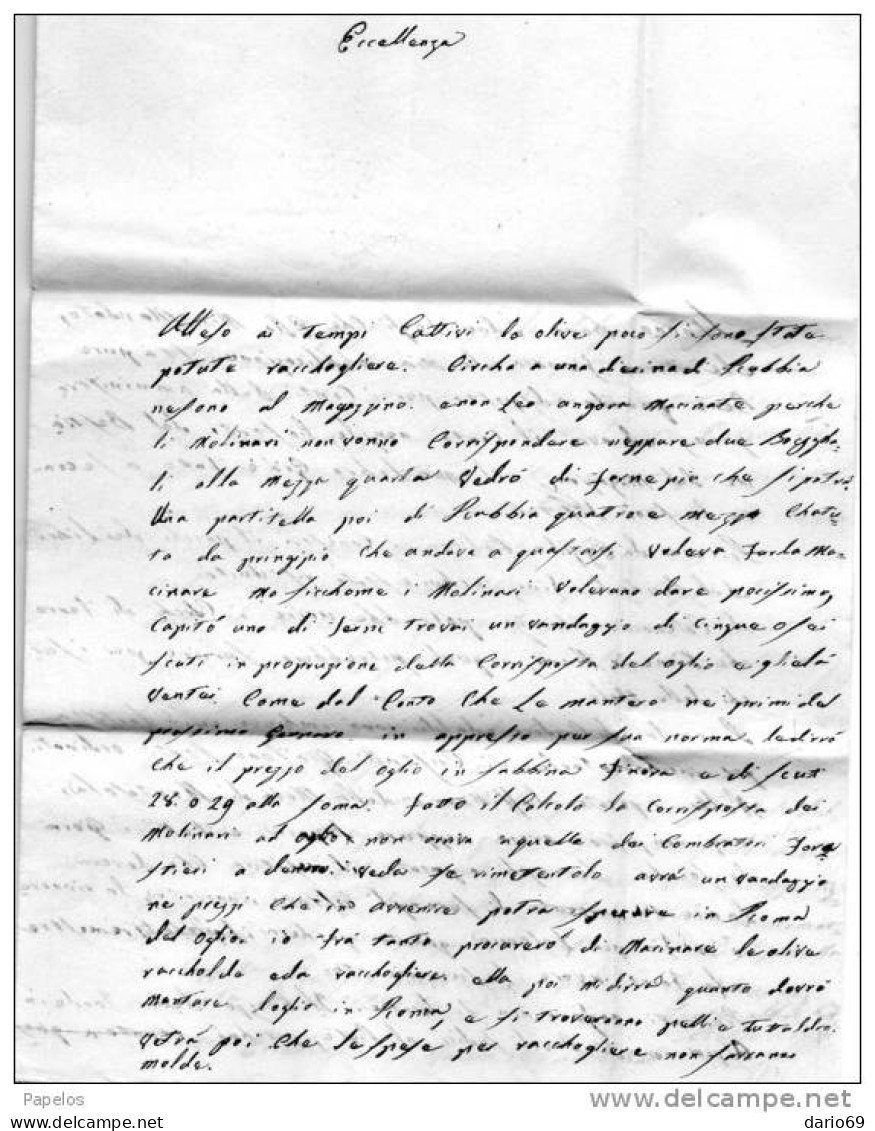 Eccellenza
Atteso ai tempi Cattivi le olive poco si sono state
potute racchogliere. Circha a una diecina di Rubbia
ne sono al Magazzino. e non leo angora Macinate perche
li Molinari non vonno Corrispondere neppure due Boggha-
li alla mezza quarta Vedró di farne piu che si potrà
Una partitella poi di Rubbia quatro e mezzo
da principio che andava a guastarsi voleva farla Ma-
cinare ma sicchome i Molinari volevano dare pocissimo,
Capitó uno di Terni trovai un vandaggio di cinque o sei
scuti in propruzione della Corrisposta del oglio e glielà
Ventei. Come dal Conto che Le mantero nei primi del
prossimo Gennaro. in appresso per sua norma le dirró
che il prezzo del oglio in Sabbina finora e di scuti
28. o 29 alla soma. fatto il Calcolo la Corrisposta dei
Molinari ad oglio non arriva a quella dei Combratori Fora-
stieri a Veda se rimetentolo avrà un vandaggio
nei prezzi che in avvenire potra sperare in Roma
del oglio. io frà tanto procareró di Macinare le olive
raccholde e da racchogliere. ella poi mi dirrà quanto dovró
mantare loglio in Roma, e si troverono
Vetrà poi che le spese per racchogliere non sarranno
molde.
Papelos
delcampe.net
dario69